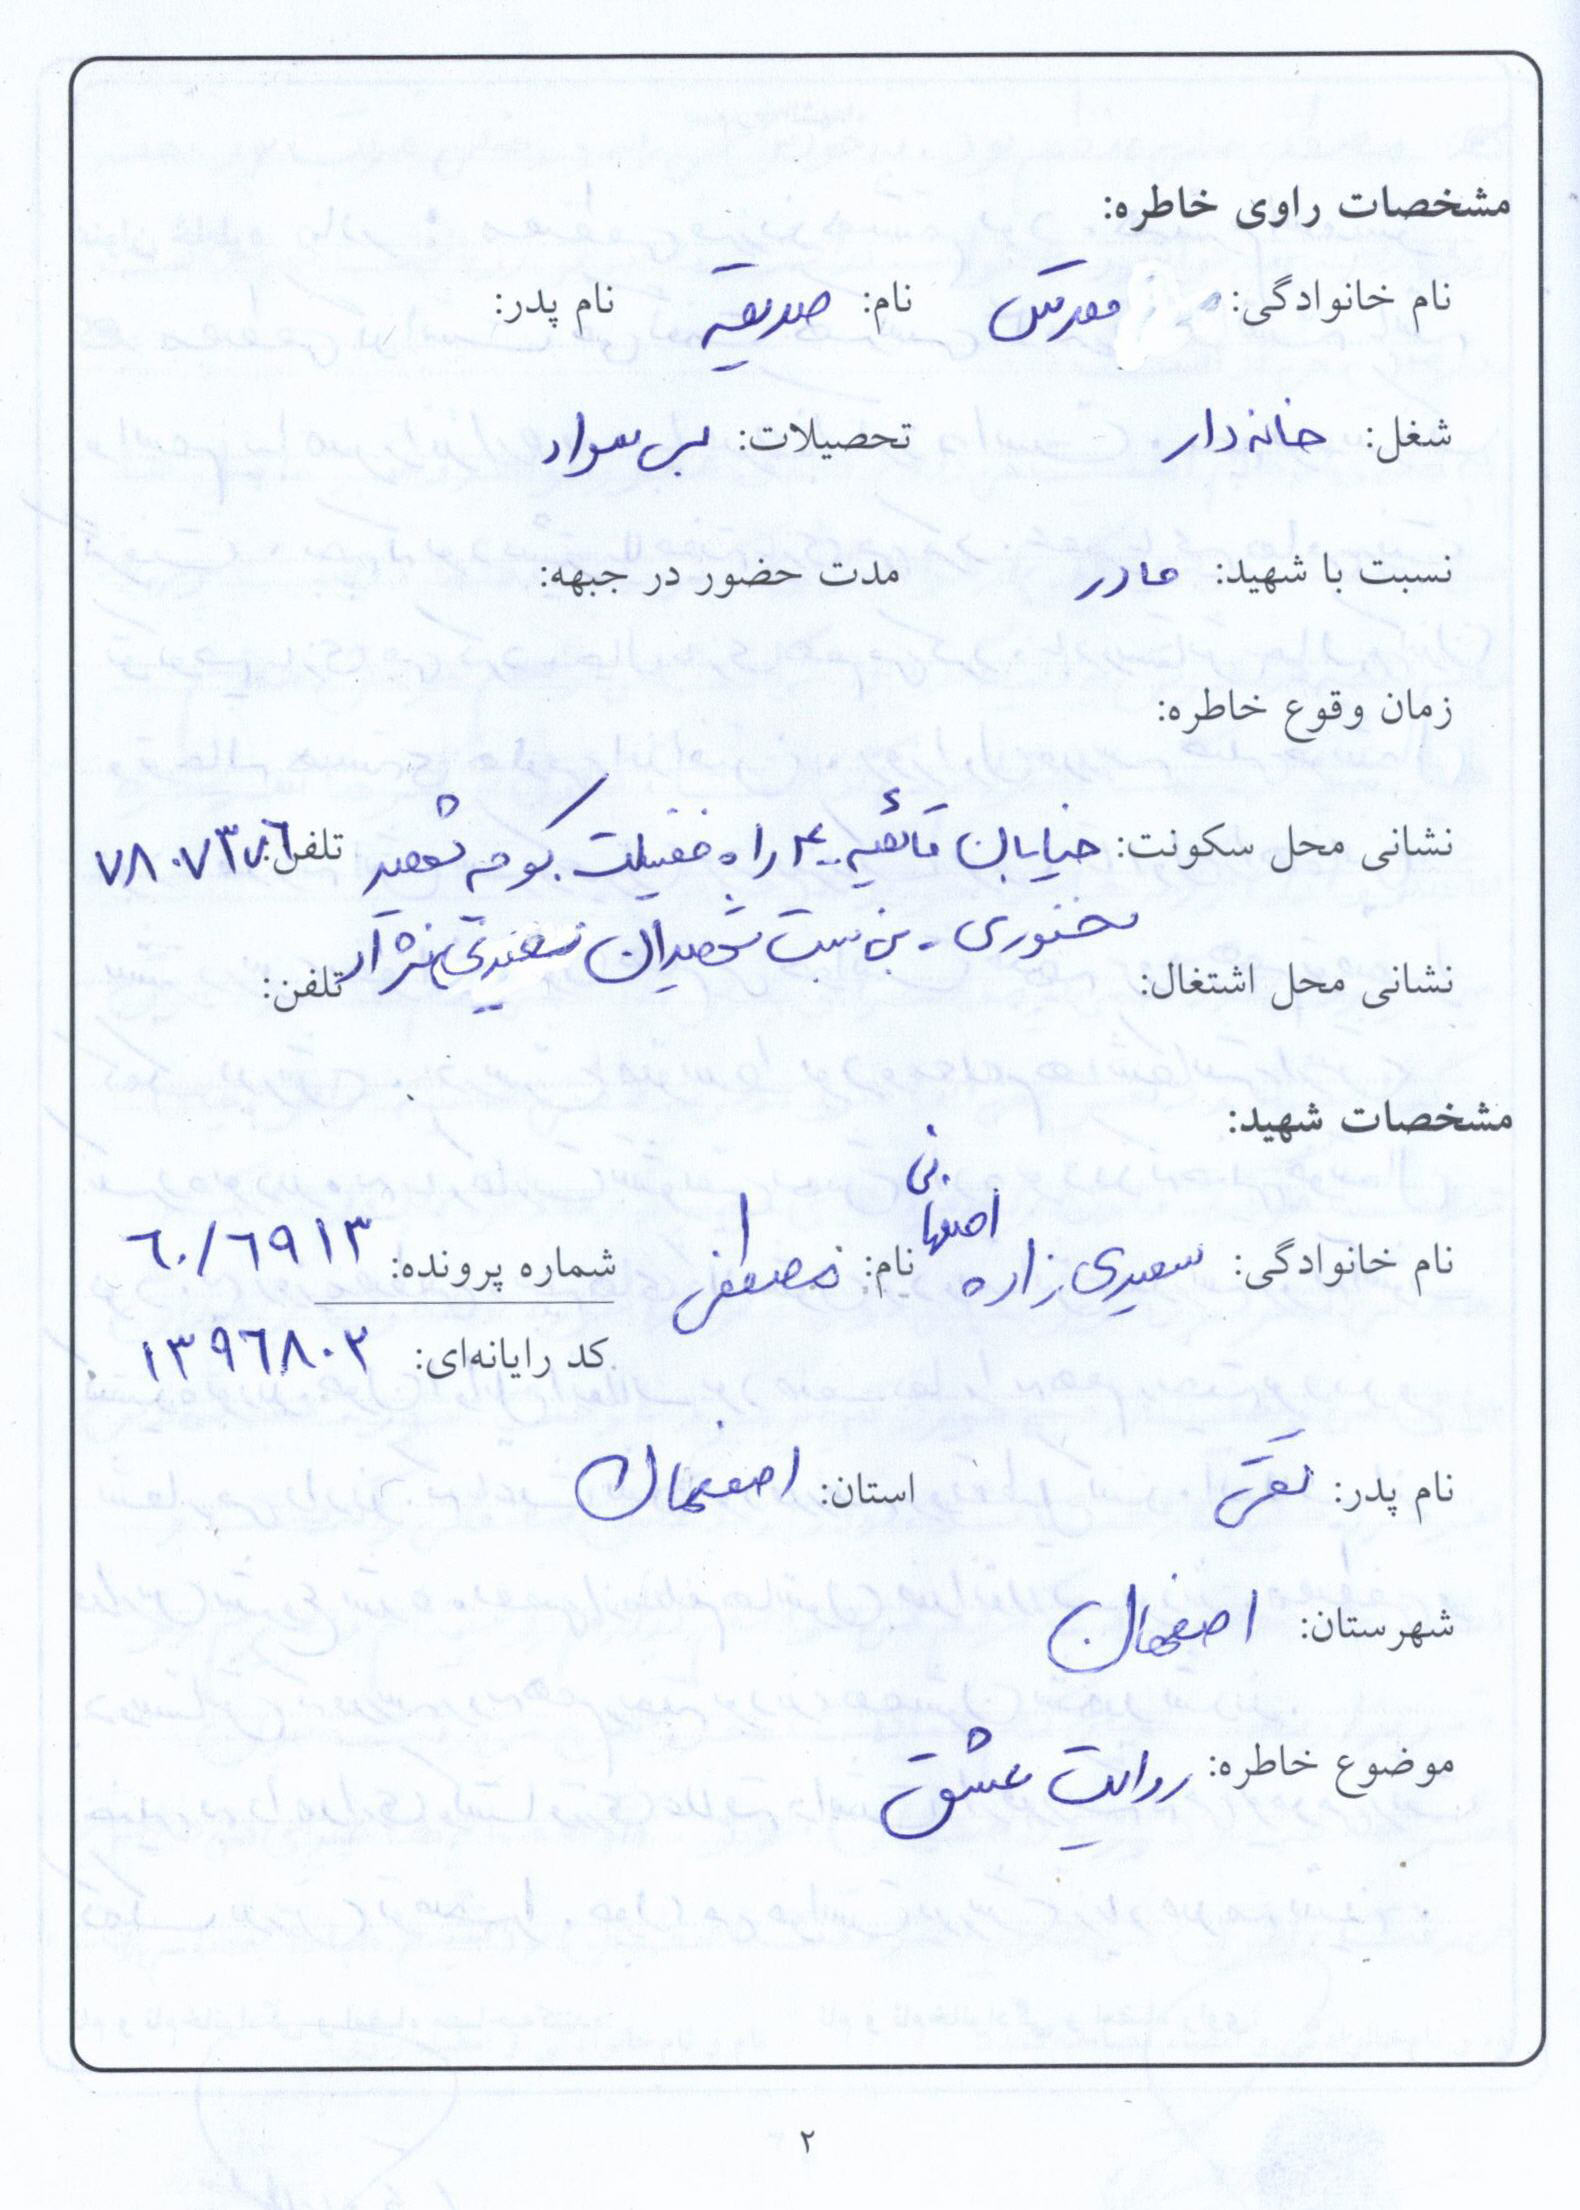 مشخصات راوی خاطره:
نام خانوادگی: مقدس نام: صدیقه نام پدر:
شغل: خانه دار تحصیلات: بی سواد
نسبت با شهید: مادر مدت حضور در جبهه:
زمان وقوع خاطره:
نشانی محل سکونت: خیابان قائمیه ۴ راه فضیلت کوچه شهید تلفن:
بن بست شهیدان
نشانی محل اشتغال: تلفن:
مشخصات شهید:
نام خانوادگی: سعیدی زاده اصفهانی نام: مصطفی شماره پرونده: ۶۰/۶۹۱۳
کد رایانه‌ای: ۱۳۹۶۸۰۲
نام پدر: تقی استان: اصفهان
شهرستان: اصفهان
موضوع خاطره: روایت عشق
۲